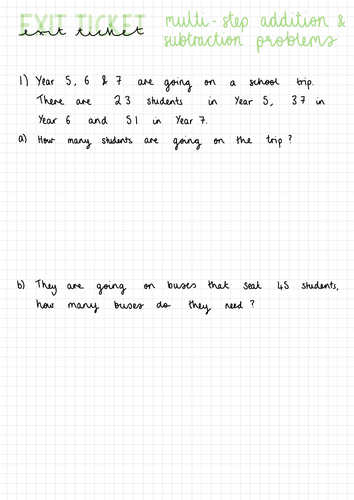 EXIT TICKET
exit ticket
multi-step addition &
subtraction problems
1) Year 5, 6 & 7 are going on a school trip.
There are 23 students in Year 5, 37 in
Year 6 and 51 in Year 7.
a) How many students are going on the trip?
b) They are going on buses that seat 45 students,
how many buses do they need?